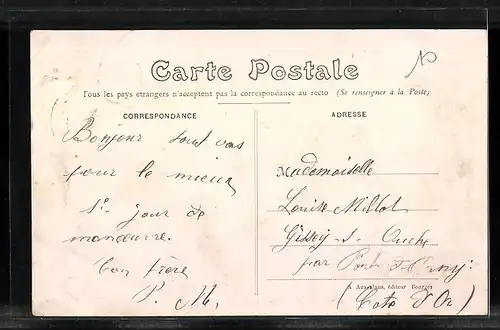 Carte Postale
Tous les pays etrangers n'acceptent pas la correspondance au recto (Se renseigner à la Poste)
CORRESPONDANCE
Bonjour tout vas
pour le mieux
jour de
manœuvre.
ton frère
P. M.
ADRESSE
Mademoiselle
Louise Millot
Gissey-s-Ouche
par Pont d'Ouny
éditeur Bourges
(Cote d'Or)